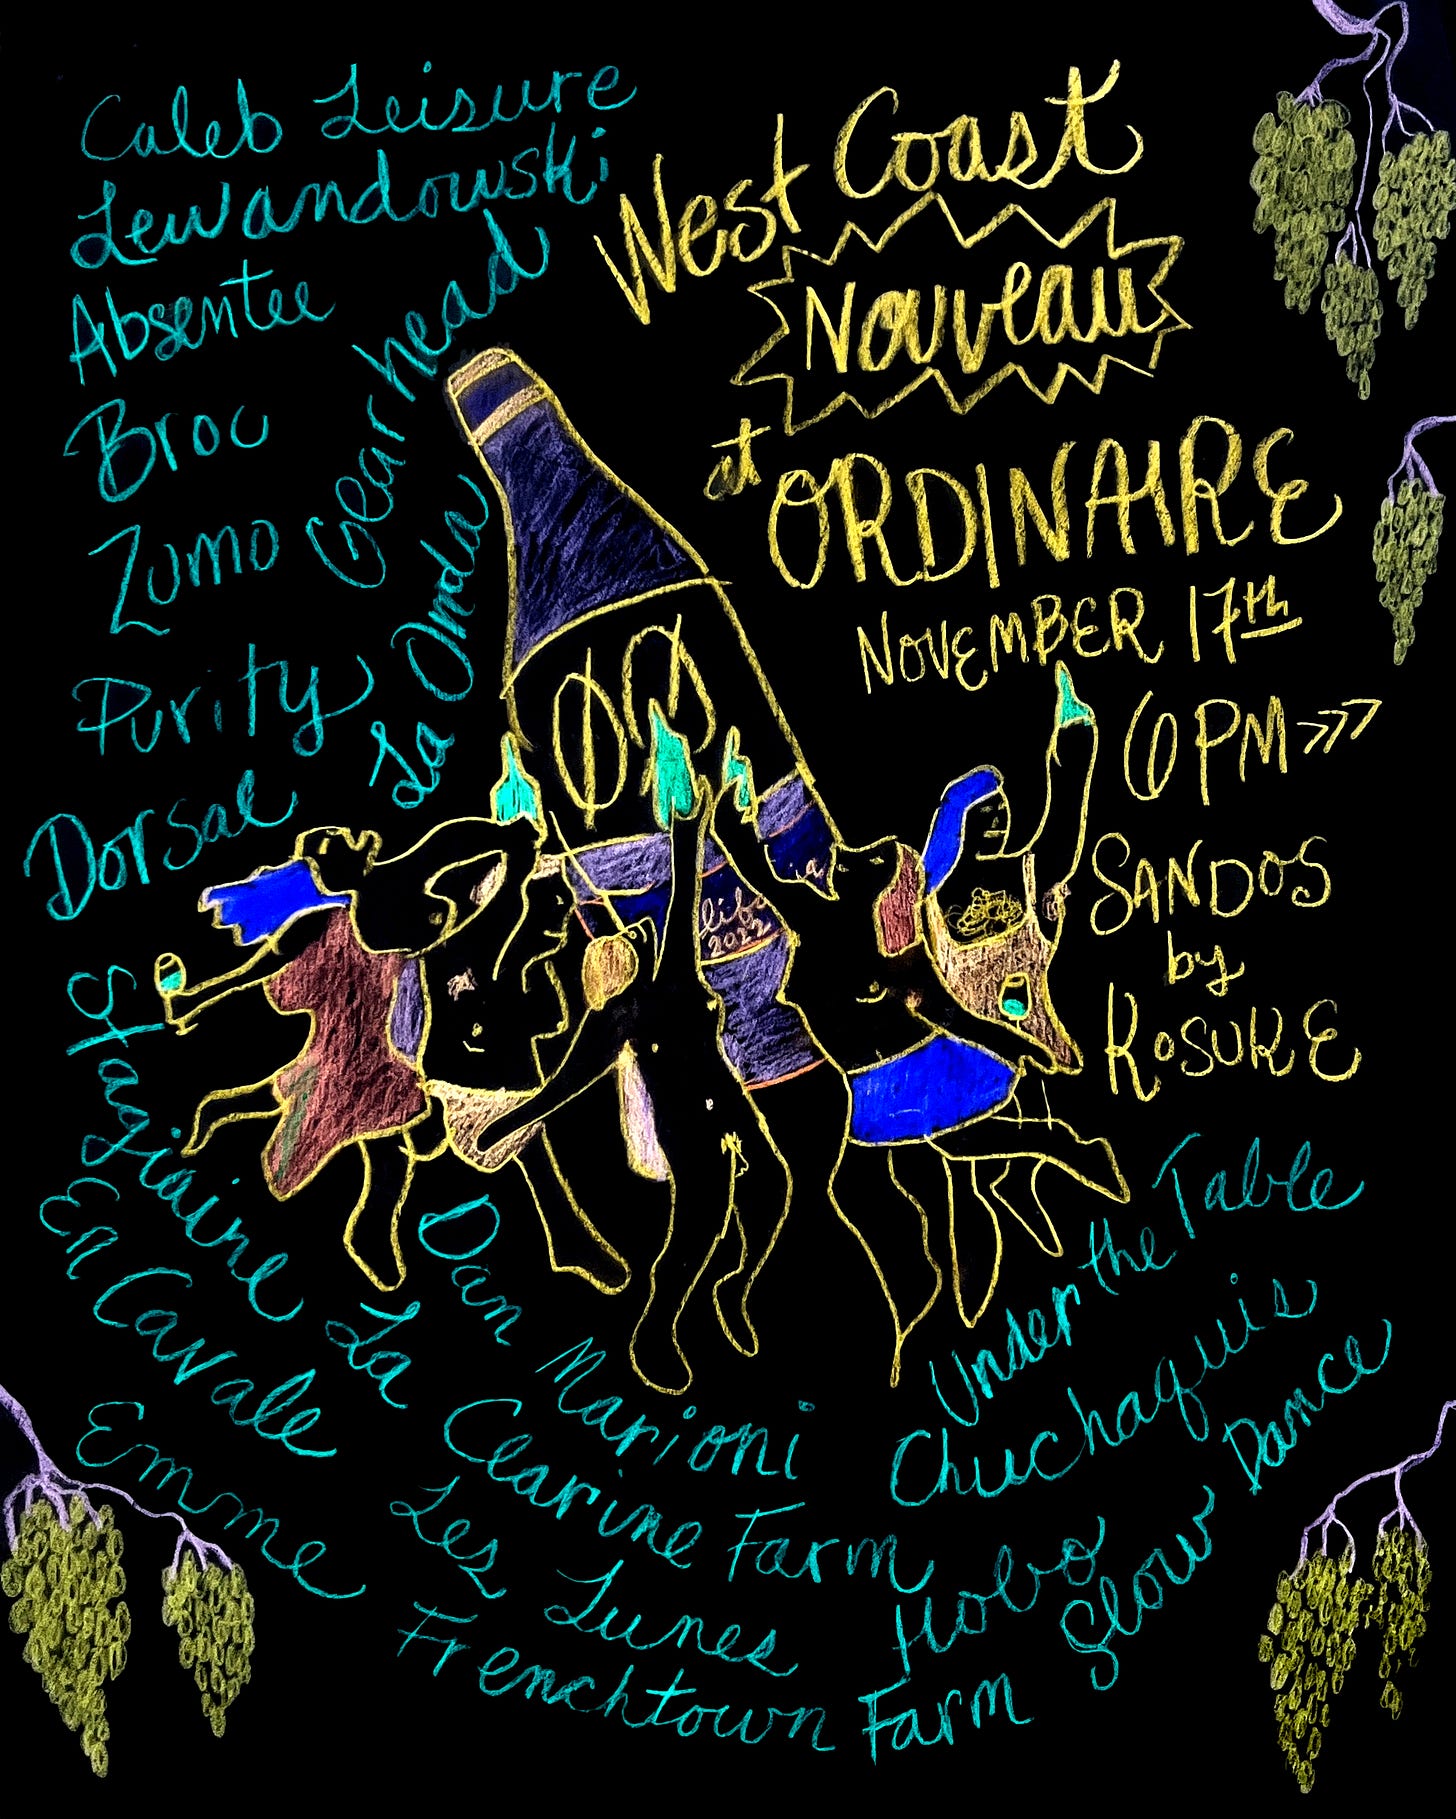 Caleb Leisure
Lewandowski
Absentee
Gearhead
Broc
Zumo
La Onda
Purity
Dorsal
West Coast
Nouveau
at ORDINAIRE
NOVEMBER 17th
6PM >>>
SANDOS
by
ROSURE
ØØ
2022
Stagiaire
En Cavale
Emme
Dan Marioni
La Clarine Farm
Les Lunes
Frenchtown Farm
Under the Table
Chuchaquis
Hobo
Slow Dance